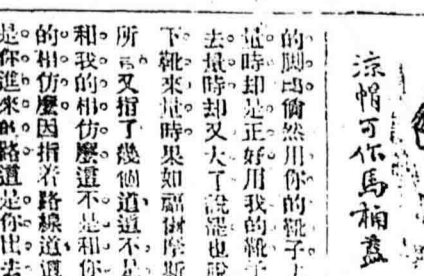 涼帽可作馬桶蓋
的脚迹倘然用你的靴子去
量時却是正好用我的靴子
去量時却又大了說罷也脫
下靴來量時果如福爾摩斯
所言又指了幾個道這不是
和我的相仿麼這不是和你
的相仿麼因指着路線道這
是你進來的路這是你出去